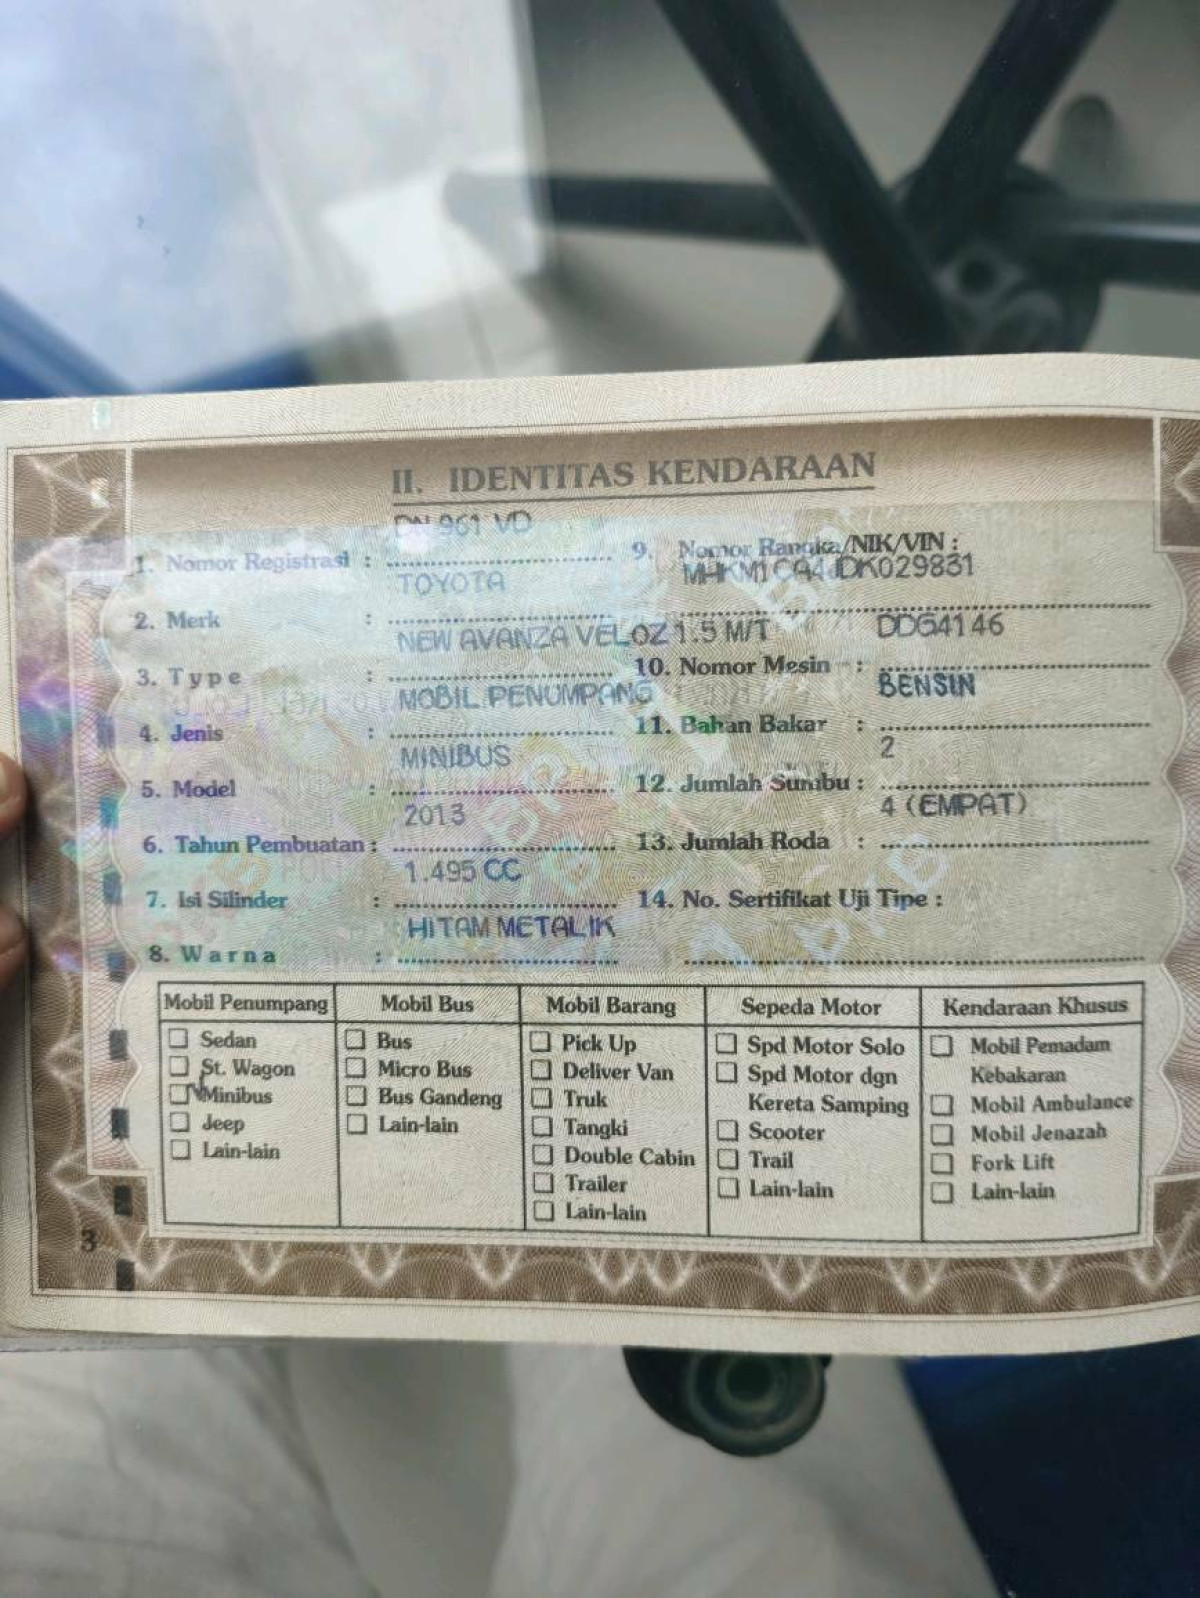 II. IDENTITAS KENDARAAN
DN 961 VD
1. Nomor Registrasi :
9. Nomor Rangka/NIK/VIN :
MHKM1CA4JDK029831
TOYOTA
2. Merk :
NEW AVANZA VELOZ 1.5 M/T
DDG4146
3. Type :
10. Nomor Mesin :
MOBIL PENUMPANG
BENSIN
4. Jenis :
11. Bahan Bakar :
MINIBUS
2
5. Model :
12. Jumlah Sumbu :
2013
4 (EMPAT)
6. Tahun Pembuatan :
13. Jumlah Roda :
1.495 CC
7. Isi Silinder :
14. No. Sertifikat Uji Tipe :
HITAM METALIK
8. Warna :
Mobil Penumpang
Sedan
St. Wagon
Minibus
Jeep
Lain-lain
Mobil Bus
Bus
Micro Bus
Bus Gandeng
Lain-lain
Mobil Barang
Pick Up
Deliver Van
Truk
Tangki
Double Cabin
Trailer
Lain-lain
Sepeda Motor
Spd Motor Solo
Spd Motor dgn
Kereta Samping
Scooter
Trail
Lain-lain
Kendaraan Khusus
Mobil Pemadam
Kebakaran
Mobil Ambulance
Mobil Jenazah
Fork Lift
Lain-lain
3